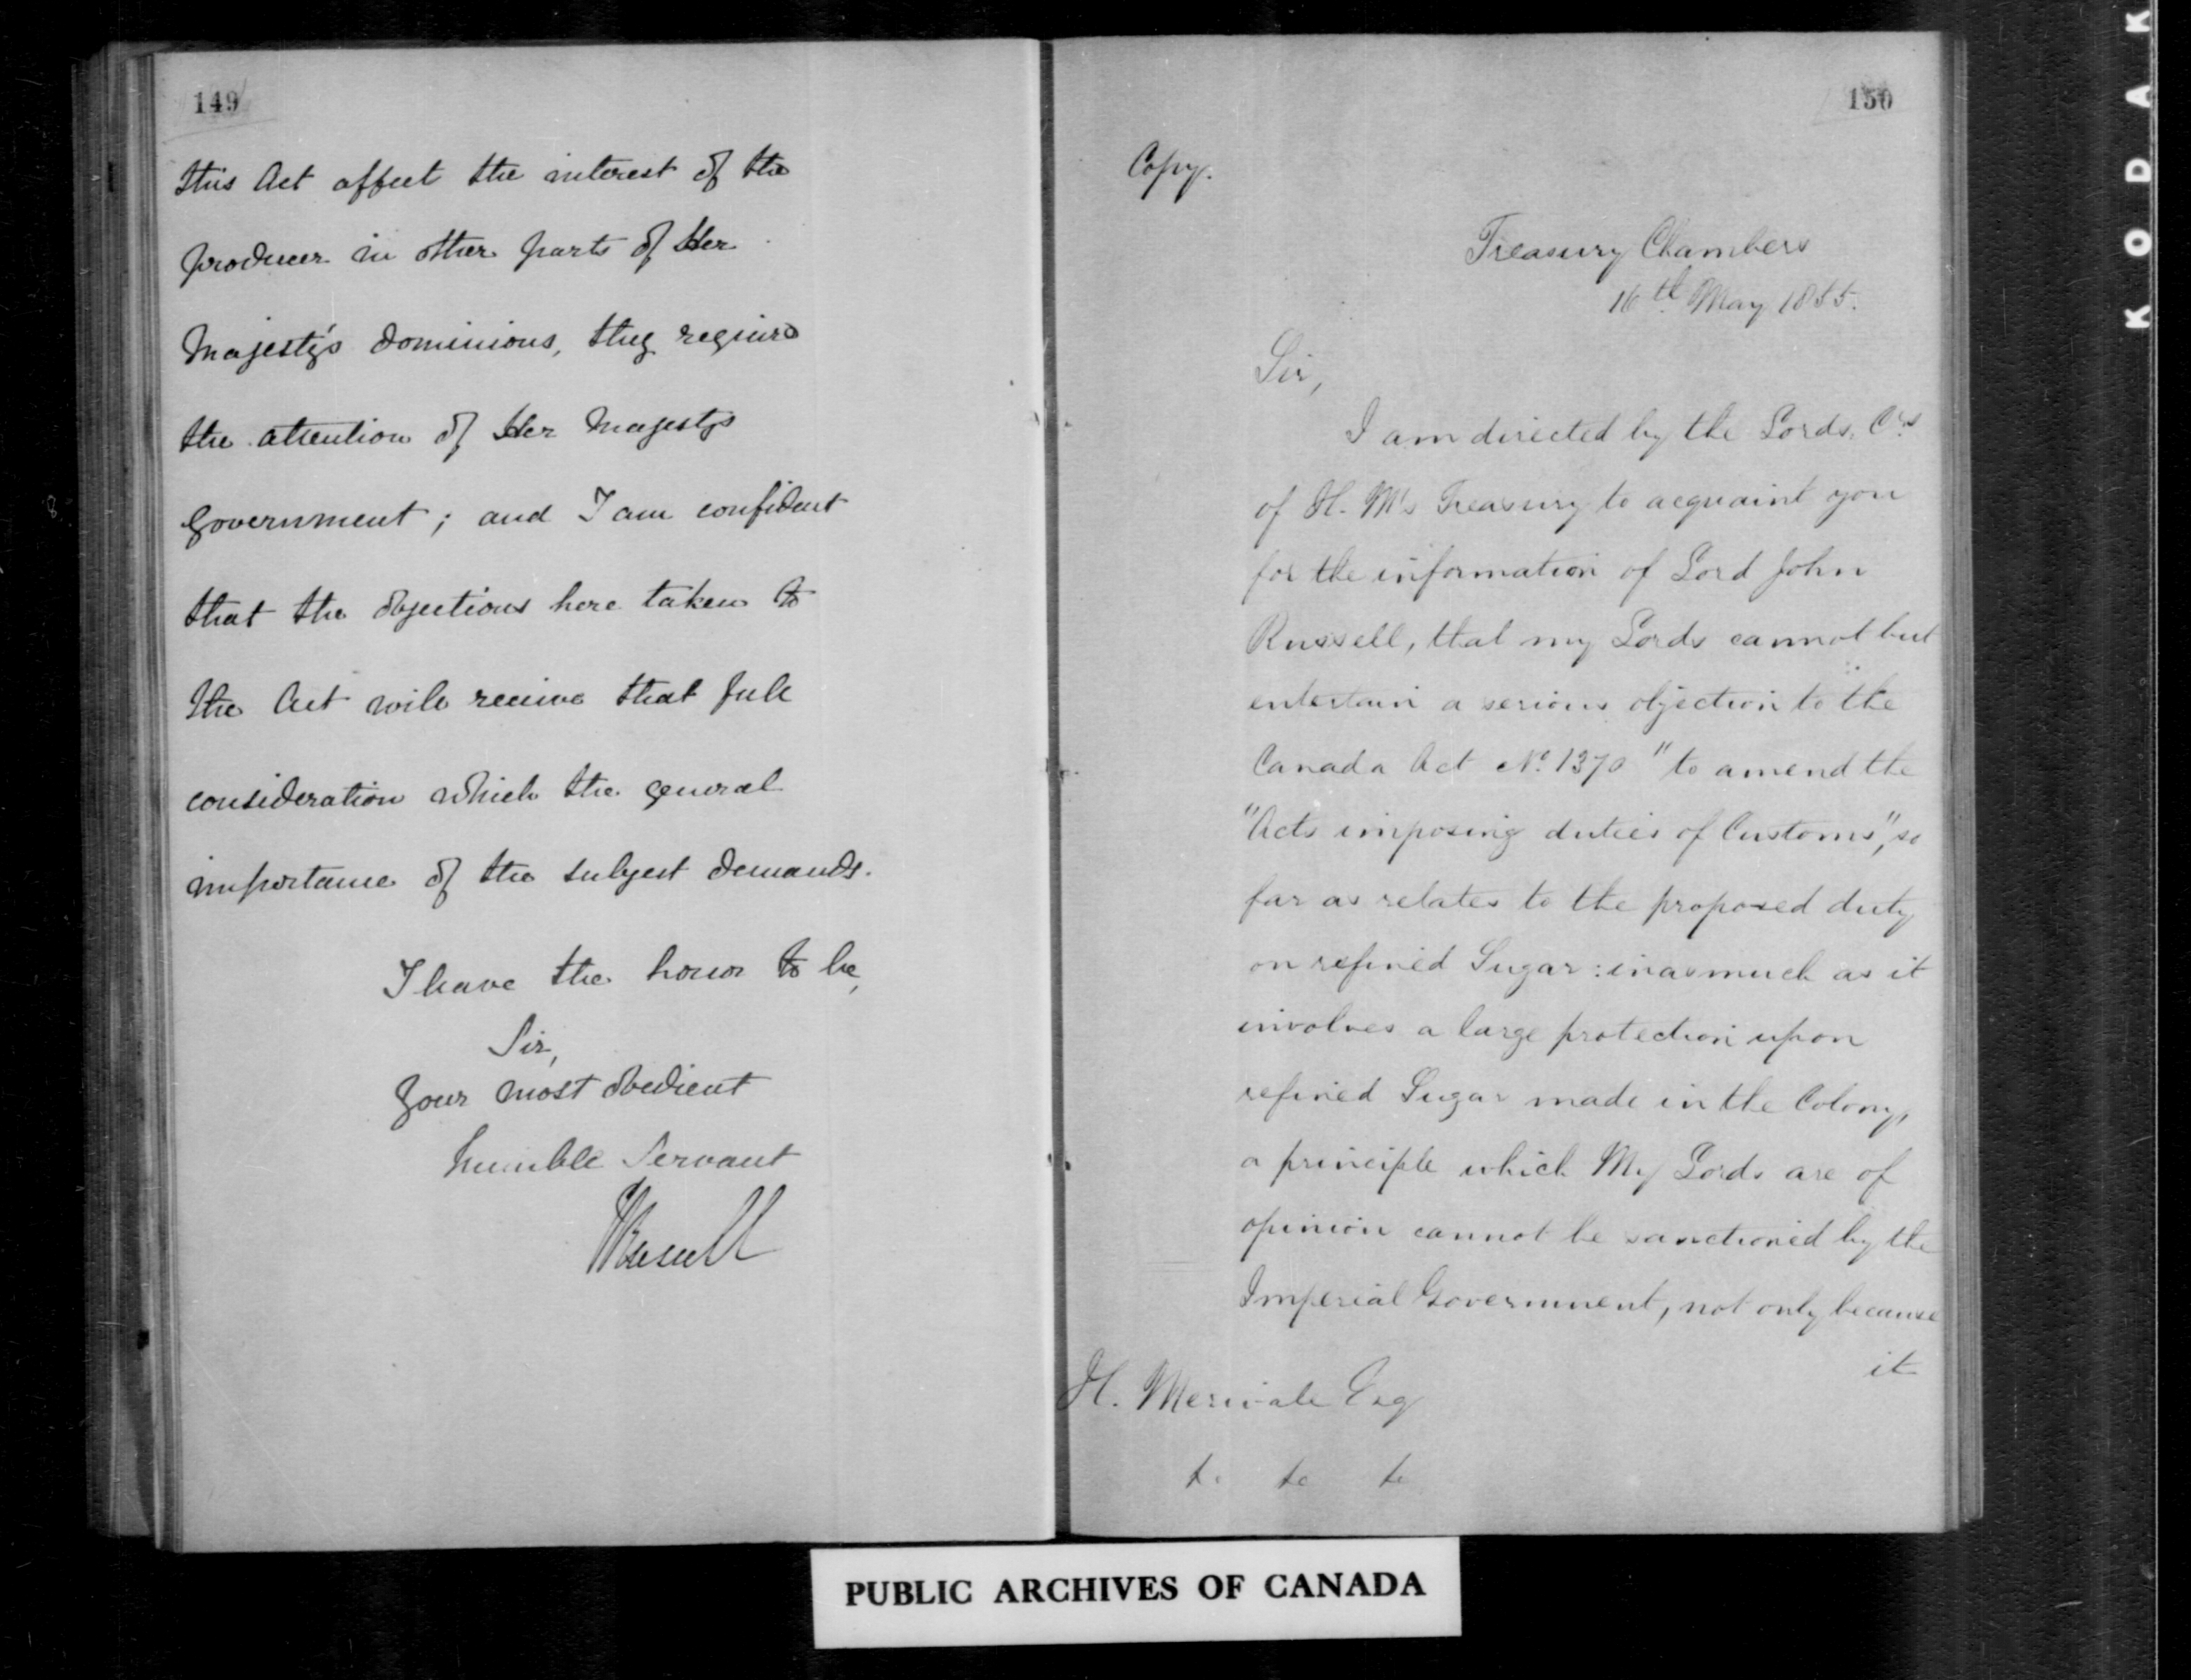 149
this Act affect the interest of the
producer in other parts of Her
Majesty's dominions, they require
the attention of Her Majestys
Government; and I am confident
that the objections here taken to
the Act will receive that full
consideration which the general
importance of the subject demands.
I have the honor to be,
Sir,
Your most obedient
humble Servant
JRussell
150
Copy.
Treasury Chambers
16th May 1855.
Sir,
I am directed by the Lords Crs
of H. M's Treasury to acquaint you
for the information of Lord John
Russell, that my Lords cannot but
entertain a serious objection to the
Canada Act No. 1370 "to amend the
"Acts imposing duties of Customs", so
far as relates to the proposed duty
on refined Sugar: inasmuch as it
involves a large protection upon
refined Sugar made in the Colony,
a principle which My Lords are of
opinion cannot be sanctioned by the
Imperial Government, not only because
it
H. Merivale Esq
&c &c &c
PUBLIC ARCHIVES OF CANADA
KODAK